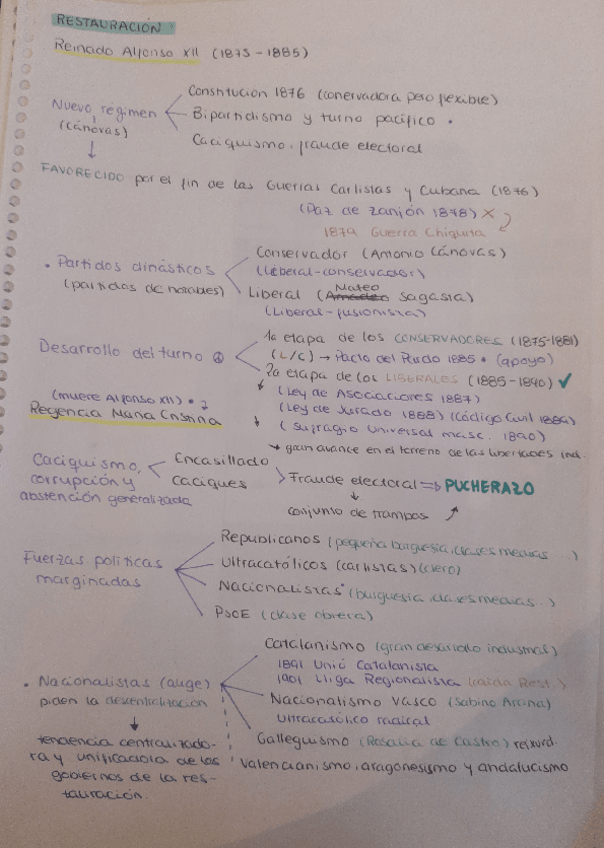 RESTAURACIÓN
Reinado Alfonso XII (1875-1885)
Nuevo régimen (Cánovas)
Constitución 1876 (conservadora pero flexible)
Bipartidismo y turno pacífico
Caciquismo, fraude electoral
FAVORECIDO por el fin de las Guerras Carlistas y Cubana (1876)
(Paz de Zanjón 1878) X
1879 Guerra Chiquita
· Partidos dinásticos
(partidos de notables)
Conservador (Antonio Cánovas)
(Liberal-conservador)
Mateo
Liberal (Amadeo Sagasta)
(Liberal-fusionista)
Desarrollo del turno
1a etapa de los CONSERVADORES (1875-1881)
(L/C) → Pacto del Pardo 1885 · (apoyo)
2a etapa de los LIBERALES (1885-1890) ✓
(Ley de Asociaciones 1887)
(Ley de Jurado 1888) (Código Civil 1889)
(Sufragio Universal masc. 1890)
→ gran avance en el terreno de las libertades ind.
(muere Alfonso XII) ·
Regencia María Cristina
Caciquismo, corrupción y abstención generalizada
Encasillado
Caciques
Fraude electoral => PUCHERAZO
conjunto de trampas
Fuerzas políticas marginadas
Republicanos (pequeña burguesía, clases medias...)
Ultracatólicos (carlistas) (clero)
Nacionalistas (burguesía, clases medias..)
PSOE (clase obrera)
· Nacionalistas (auge)
piden la descentralización
tendencia centralizado-
ra y unificadora de los
gobiernos de la res-
tauración.
Catalanismo (gran desarrollo industrial)
1891 Unió Catalanista
1901 Lliga Regionalista (caída Rest.)
Nacionalismo Vasco (Sabino Arana)
Ultracatólico radical
Galleguismo (Rosalía de Castro) rexurd.
Valencianismo, aragonesismo y andalucismo